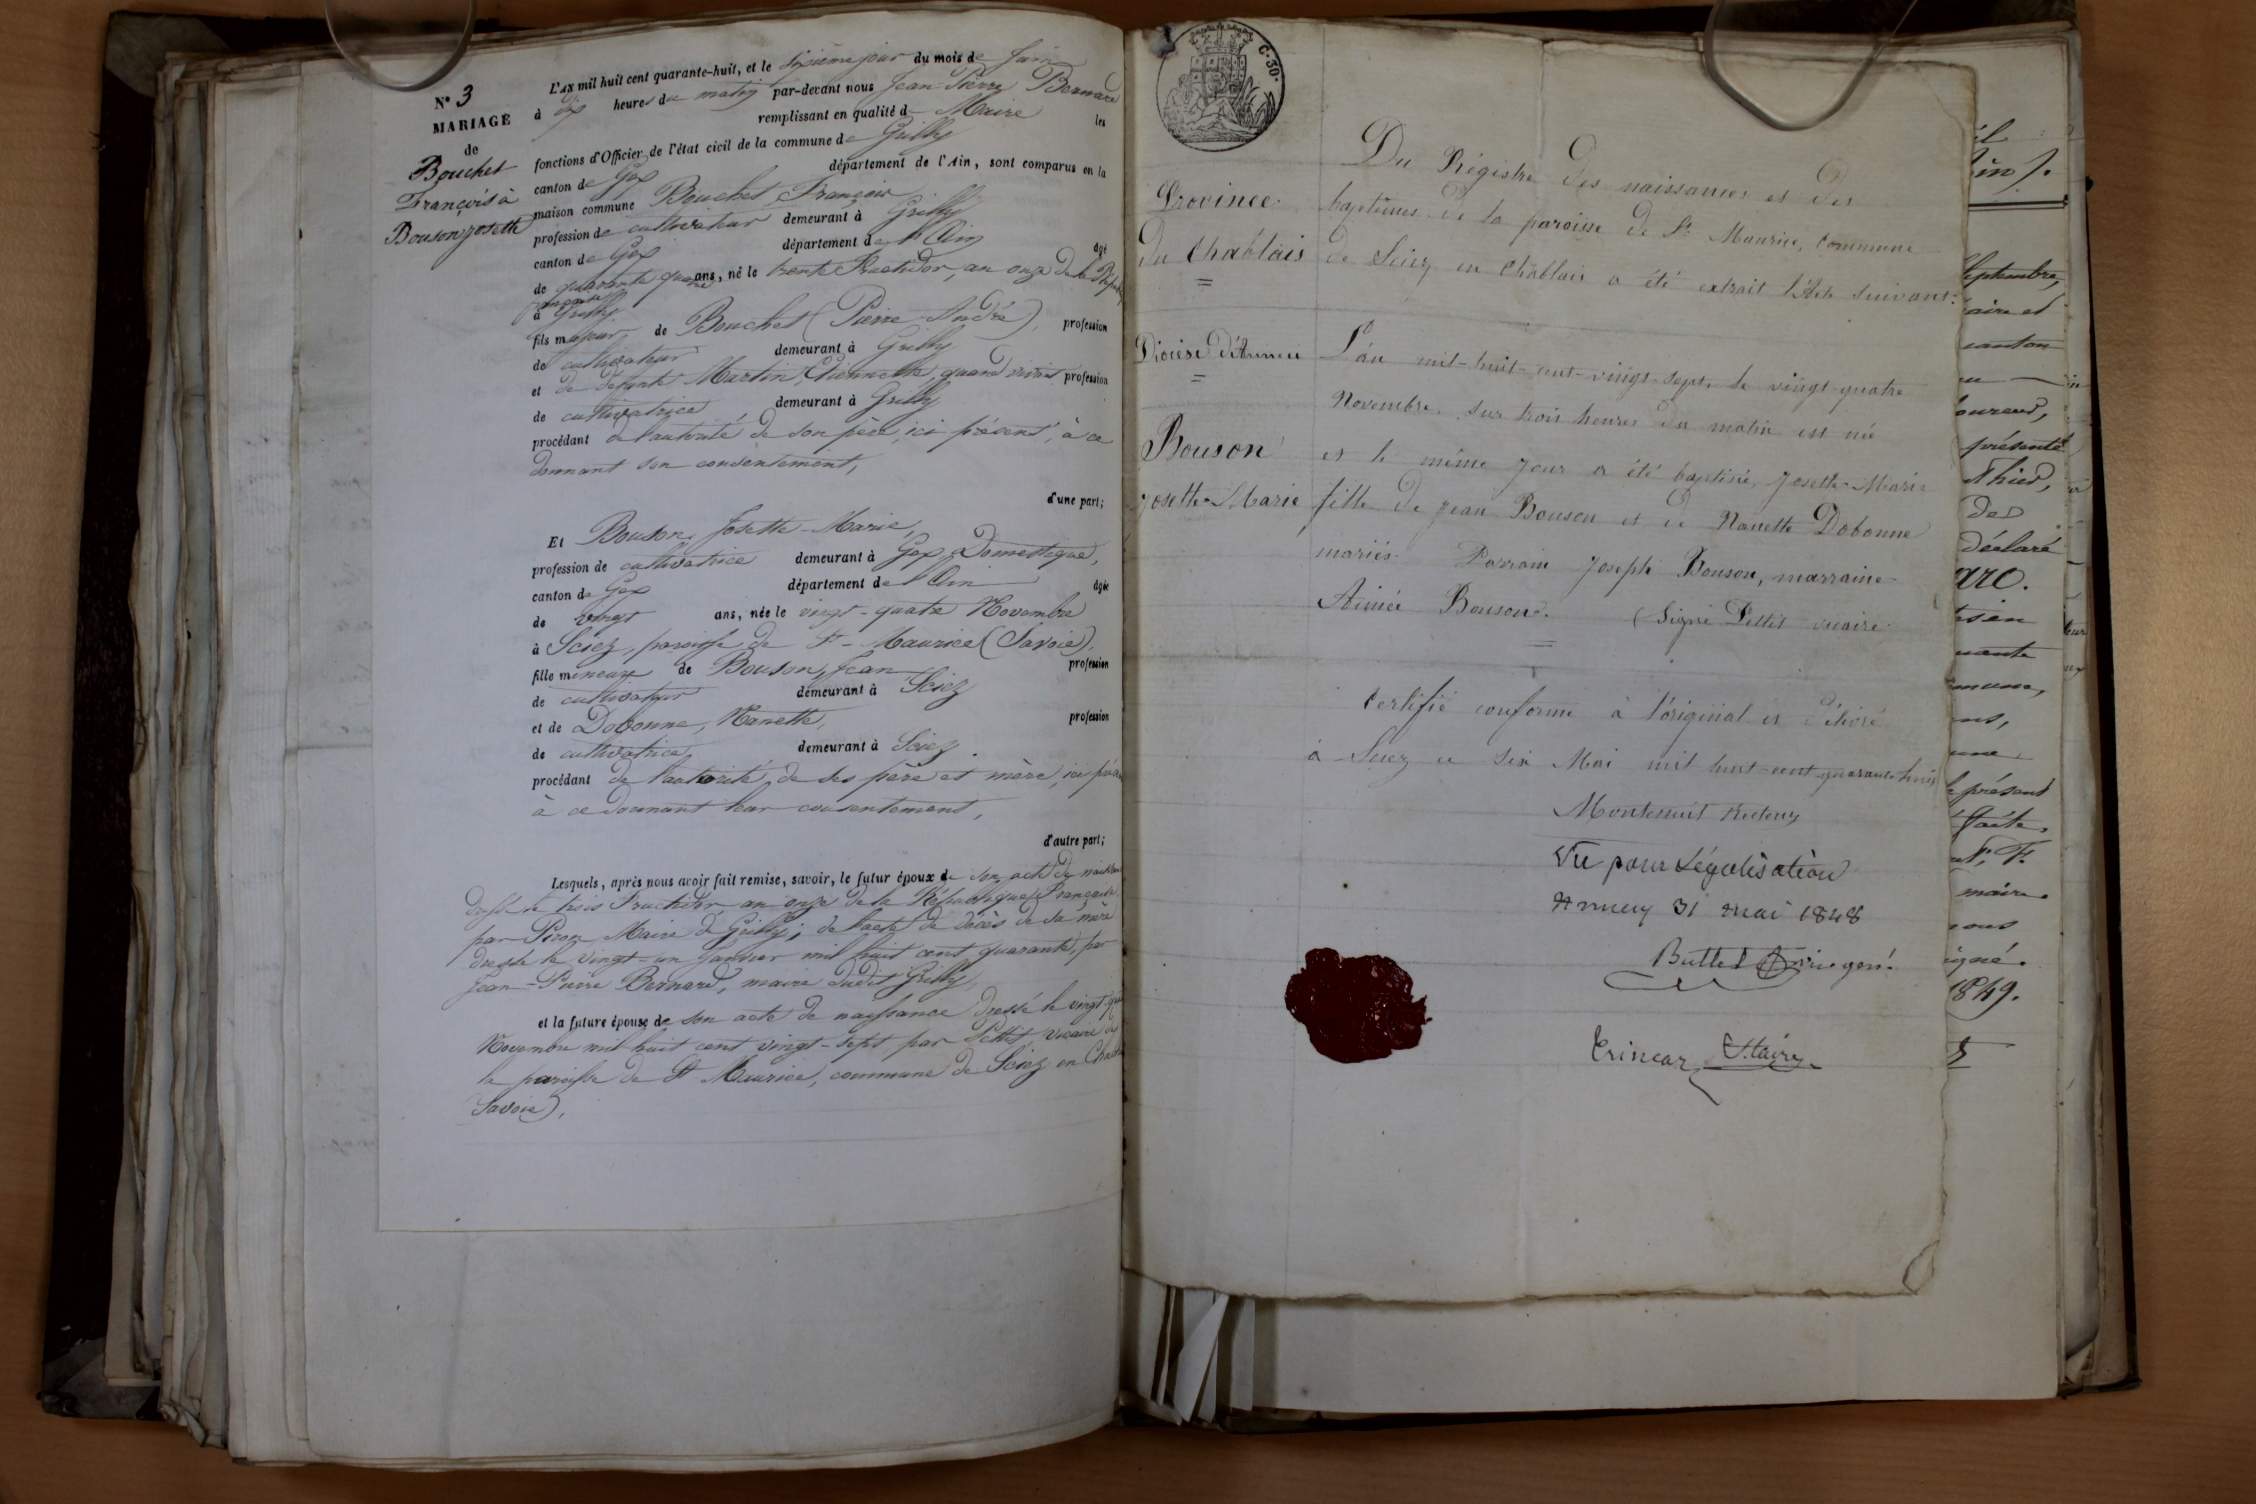 N° 3
MARIAGE
de
Bouchet
François à
Bouson Josette
L'AN mil huit cent quarante-huit, et le sixième jour du mois de Juin
à dix heures du matin par-devant nous Jean-Pierre Bernard
remplissant en qualité de Maire les
fonctions d'Officier de l'état civil de la commune de Grilly
canton de Gex département de l'Ain, sont comparus en la
maison commune Bouchet, François,
profession de cultivateur demeurant à Grilly
canton de Gex département de l'Ain âgé
de quarante quatre ans, né le trente Fructidor, an onze de la République
française
à Grilly
fils majeur de Bouchet (Pierre-André), profession
de cultivateur demeurant à Grilly
et de défunte Martin, Etiennette, quand vivait profession
de cultivatrice demeurant à Grilly
procédant de l'autorité de son père, ici présent, à ce
donnant son consentement,
d'une part;
Et Bouson, Josette-Marie,
profession de cultivatrice demeurant à Gex, Domestique,
canton de Gex département de l'Ain âgée
de vingt ans, née le vingt-quatre Novembre
à Sciez, paroisse de St-Maurice (Savoie),
fille mineure de Bouson, Jean profession
de cultivateur demeurant à Sciez
et de Dobonne, Nanette, profession
de cultivatrice demeurant à Sciez.
procédant de l'autorité de ses père et mère, ici
à ce donnant leur consentement,
d'autre part;
Lesquels, après nous avoir fait remise, savoir, le futur époux de son acte de naissance
dressé le trois Fructidor an onze de la République Française
par Piron Maire de Grilly; de l'acte de décès de sa mère
dressé le vingt-un Janvier mil huit cent quarante, par
Jean-Pierre Bernard, maire dudit Grilly,
et la future épouse de son acte de naissance dressé le vingt
Novembre mil huit cent vingt-sept par Pettit, vicaire de
la paroisse de St Maurice, commune de Sciez en
Savoie),
C. 30.
Province
du Chablais
=
Diocèse d'Annecy
=
Bouson
Josette-Marie
Du Régistre des naissances et des
baptêmes de la paroisse de St. Maurice, commune
de Sciez en Chablais a été extrait l'Acte suivant:
L'an mil-huit-cent-vingt-sept, le vingt-quatre
Novembre, sur trois heures du matin est née
et le même jour a été baptisée, Josette-Marie
fille de Jean Bouson et de Nanette Dobonne
mariés. Parrain Joseph Bouson, marraine
Aimée Bouson. (Signé Pettit vicaire
=
Certifié conforme à l'original et délivré
à Sciez ce six Mai mil huit-cent-quarante-huit
Vu pour Légalisation
Annecy 31 mai 1848
septembre,
maire et
canton
présenté
Thied,
des
déclaré
commune,
présent
maire
nous
signé.
1849.